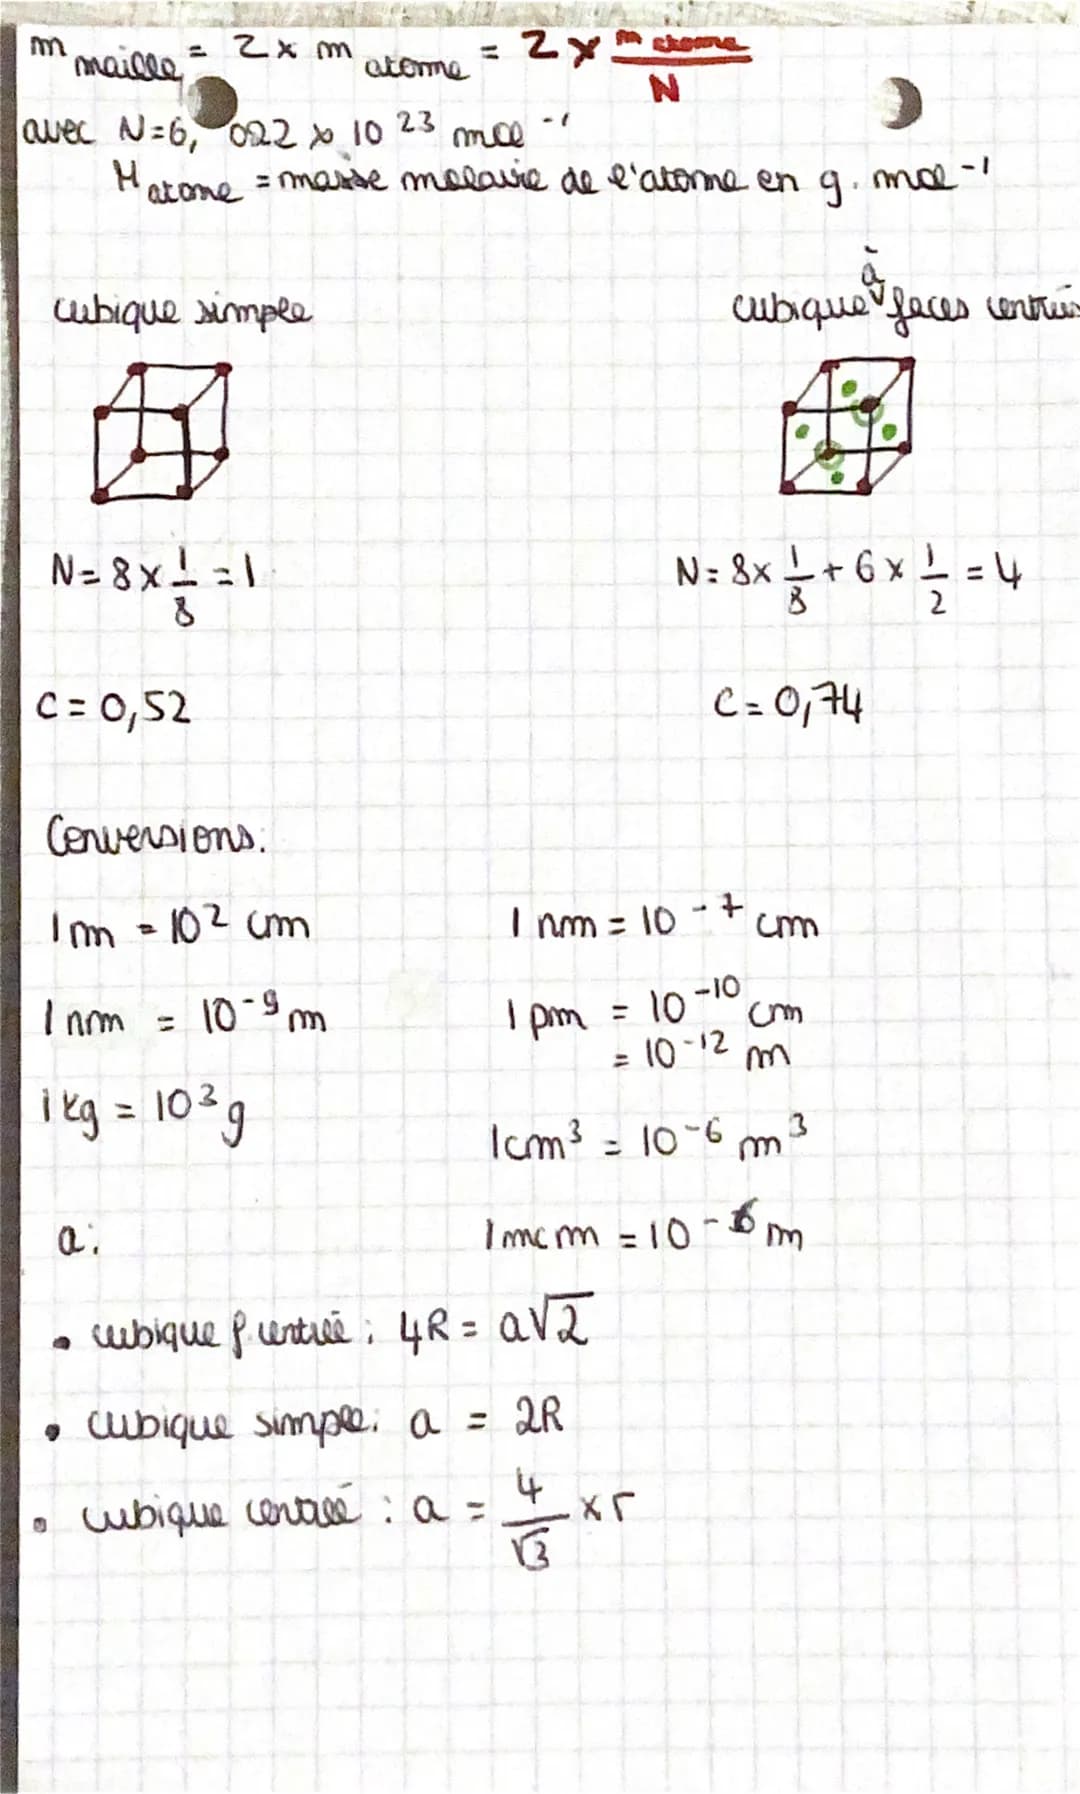 m maille = 2 x m atome = 2 x m atome / N
avec N=6,022 x 10^23 mol^-1
M atome = masse molaire de l'atome en g. mol^-1
cubique simple
cubique à faces centrées
N = 8 x 1/8 = 1
N = 8 x 1/8 + 6 x 1/2 = 4
C = 0,52
C = 0,74
Conversions:
1 m = 10^2 cm
1 nm = 10^-7 cm
1 nm = 10^-9 m
1 pm = 10^-10 cm
= 10^-12 m
1 kg = 10^3 g
1 cm^3 = 10^-6 m^3
a:
1 mcm = 10^-6 m
• cubique f. centrée : 4R = a√2
• cubique simple: a = 2R
• cubique centré : a = 4/√3 x r